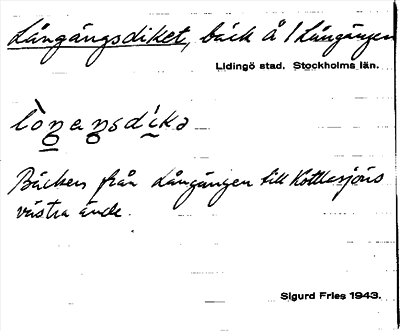 Långängsdiket, bäck å 1 Långängen
Lidingö stad. Stockholms län.
lò̱ŋaŋsdi̱kə
Bäcken från Långängen till Kottlasjöns
västra ände.
Sigurd Fries 1943.